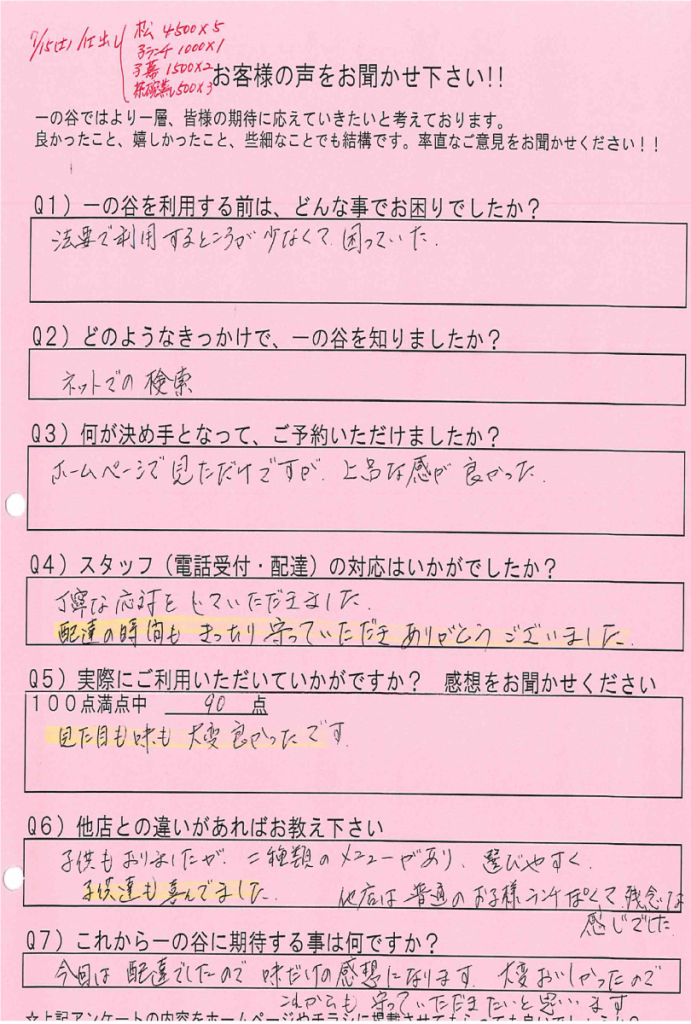 7/15(土) 仕出し
松 4500×5
子ランチ 1000×1
子幕 1500×2
茶碗蒸し500×3
お客様の声をお聞かせ下さい!!
一の谷ではより一層、皆様の期待に応えていきたいと考えております。
良かったこと、嬉しかったこと、些細なことでも結構です。率直なご意見をお聞かせください!!
Q1)一の谷を利用する前は、どんな事でお困りでしたか?
法要で利用するところが少なくて、困っていた.
Q2)どのようなきっかけで、一の谷を知りましたか?
ネットでの検索
Q3)何が決め手となって、ご予約いただけましたか?
ホームページで見ただけですが、上品な感が良かった.
Q4)スタッフ(電話受付・配達)の対応はいかがでしたか?
丁寧な応対をしていただきました.
配達の時間もきっちり守っていただきありがとうございました.
Q5)実際にご利用いただいていかがですか? 感想をお聞かせください
100点満点中 90 点
見た目も味も大変良かったです.
Q6)他店との違いがあればお教え下さい
子供もおりましたが、二種類のメニューがあり、選びやすく、
子供達も喜んでました. 他店は普通のお子様ランチぽくて、残念な
感じでした
Q7)これから一の谷に期待する事は何ですか?
今回は配達でしたので味だけの感想になります. 大変おいしかったので
これからも守っていただきたいと思います
☆上記アンケートの内容をホームページやチラシに掲載させてもらっても良いでしょうか?